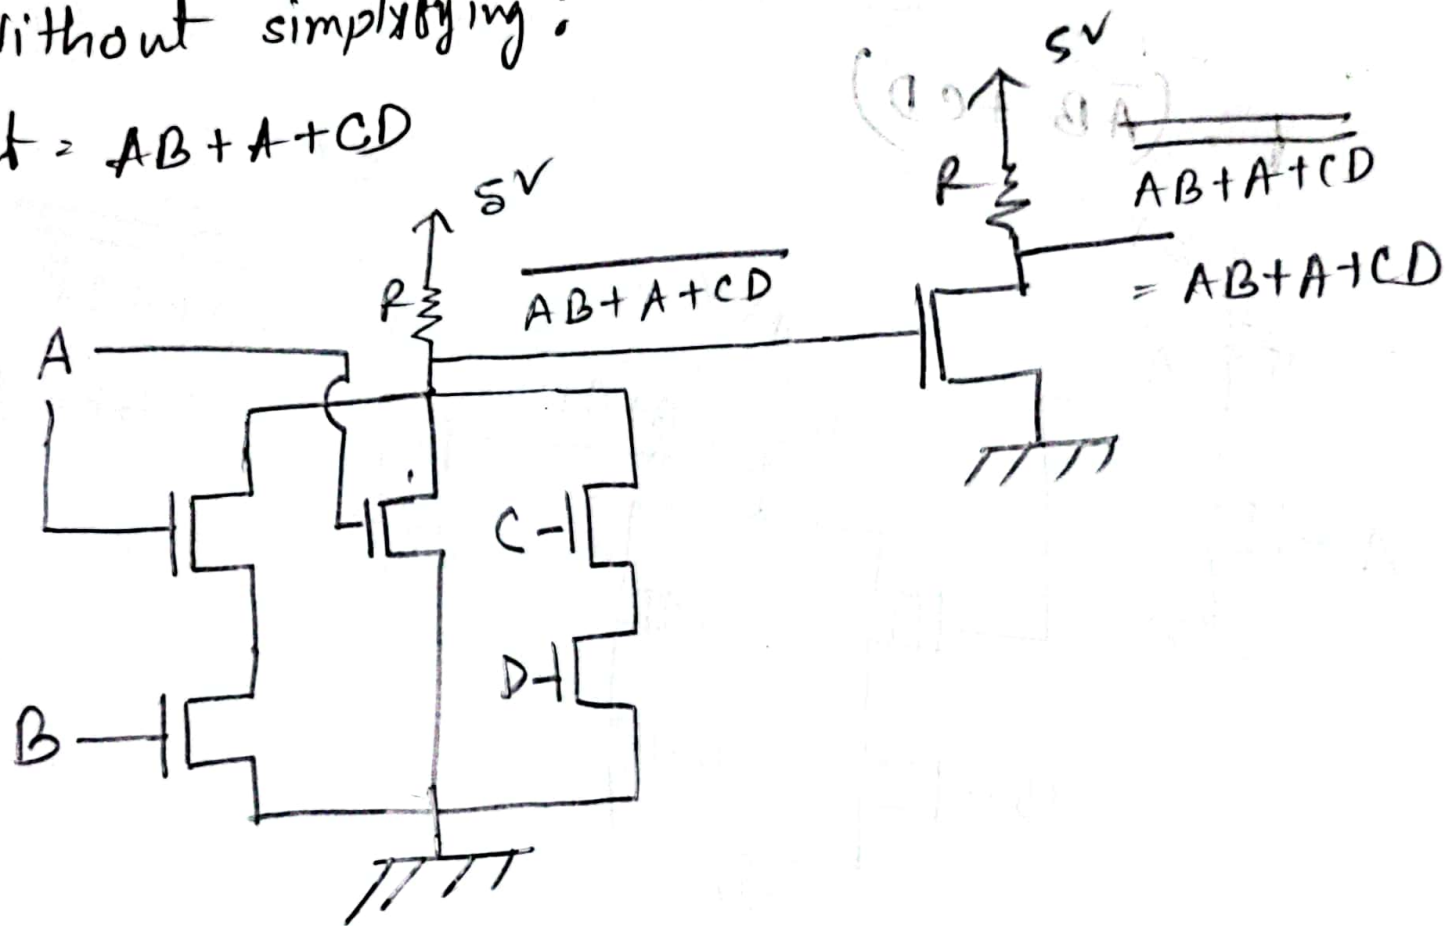 ithout simplyfying :
f = AB + A + CD
5V
R
A
B
C
D
\overline{AB + A + CD}
5V
R
\overline{\overline{AB + A + CD}}
= AB + A + CD